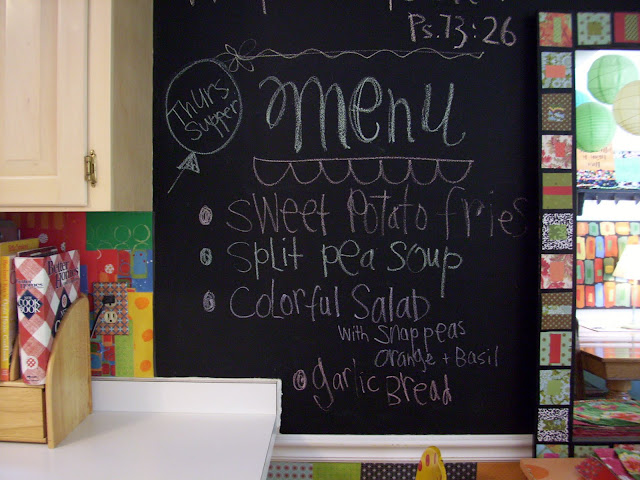 Ps.73:26
Thurs
Supper
menu
sweet potato fries
split pea soup
Colorful Salad
with snap peas
orange + Basil
garlic Bread
Better Homes
COOK
BOOK